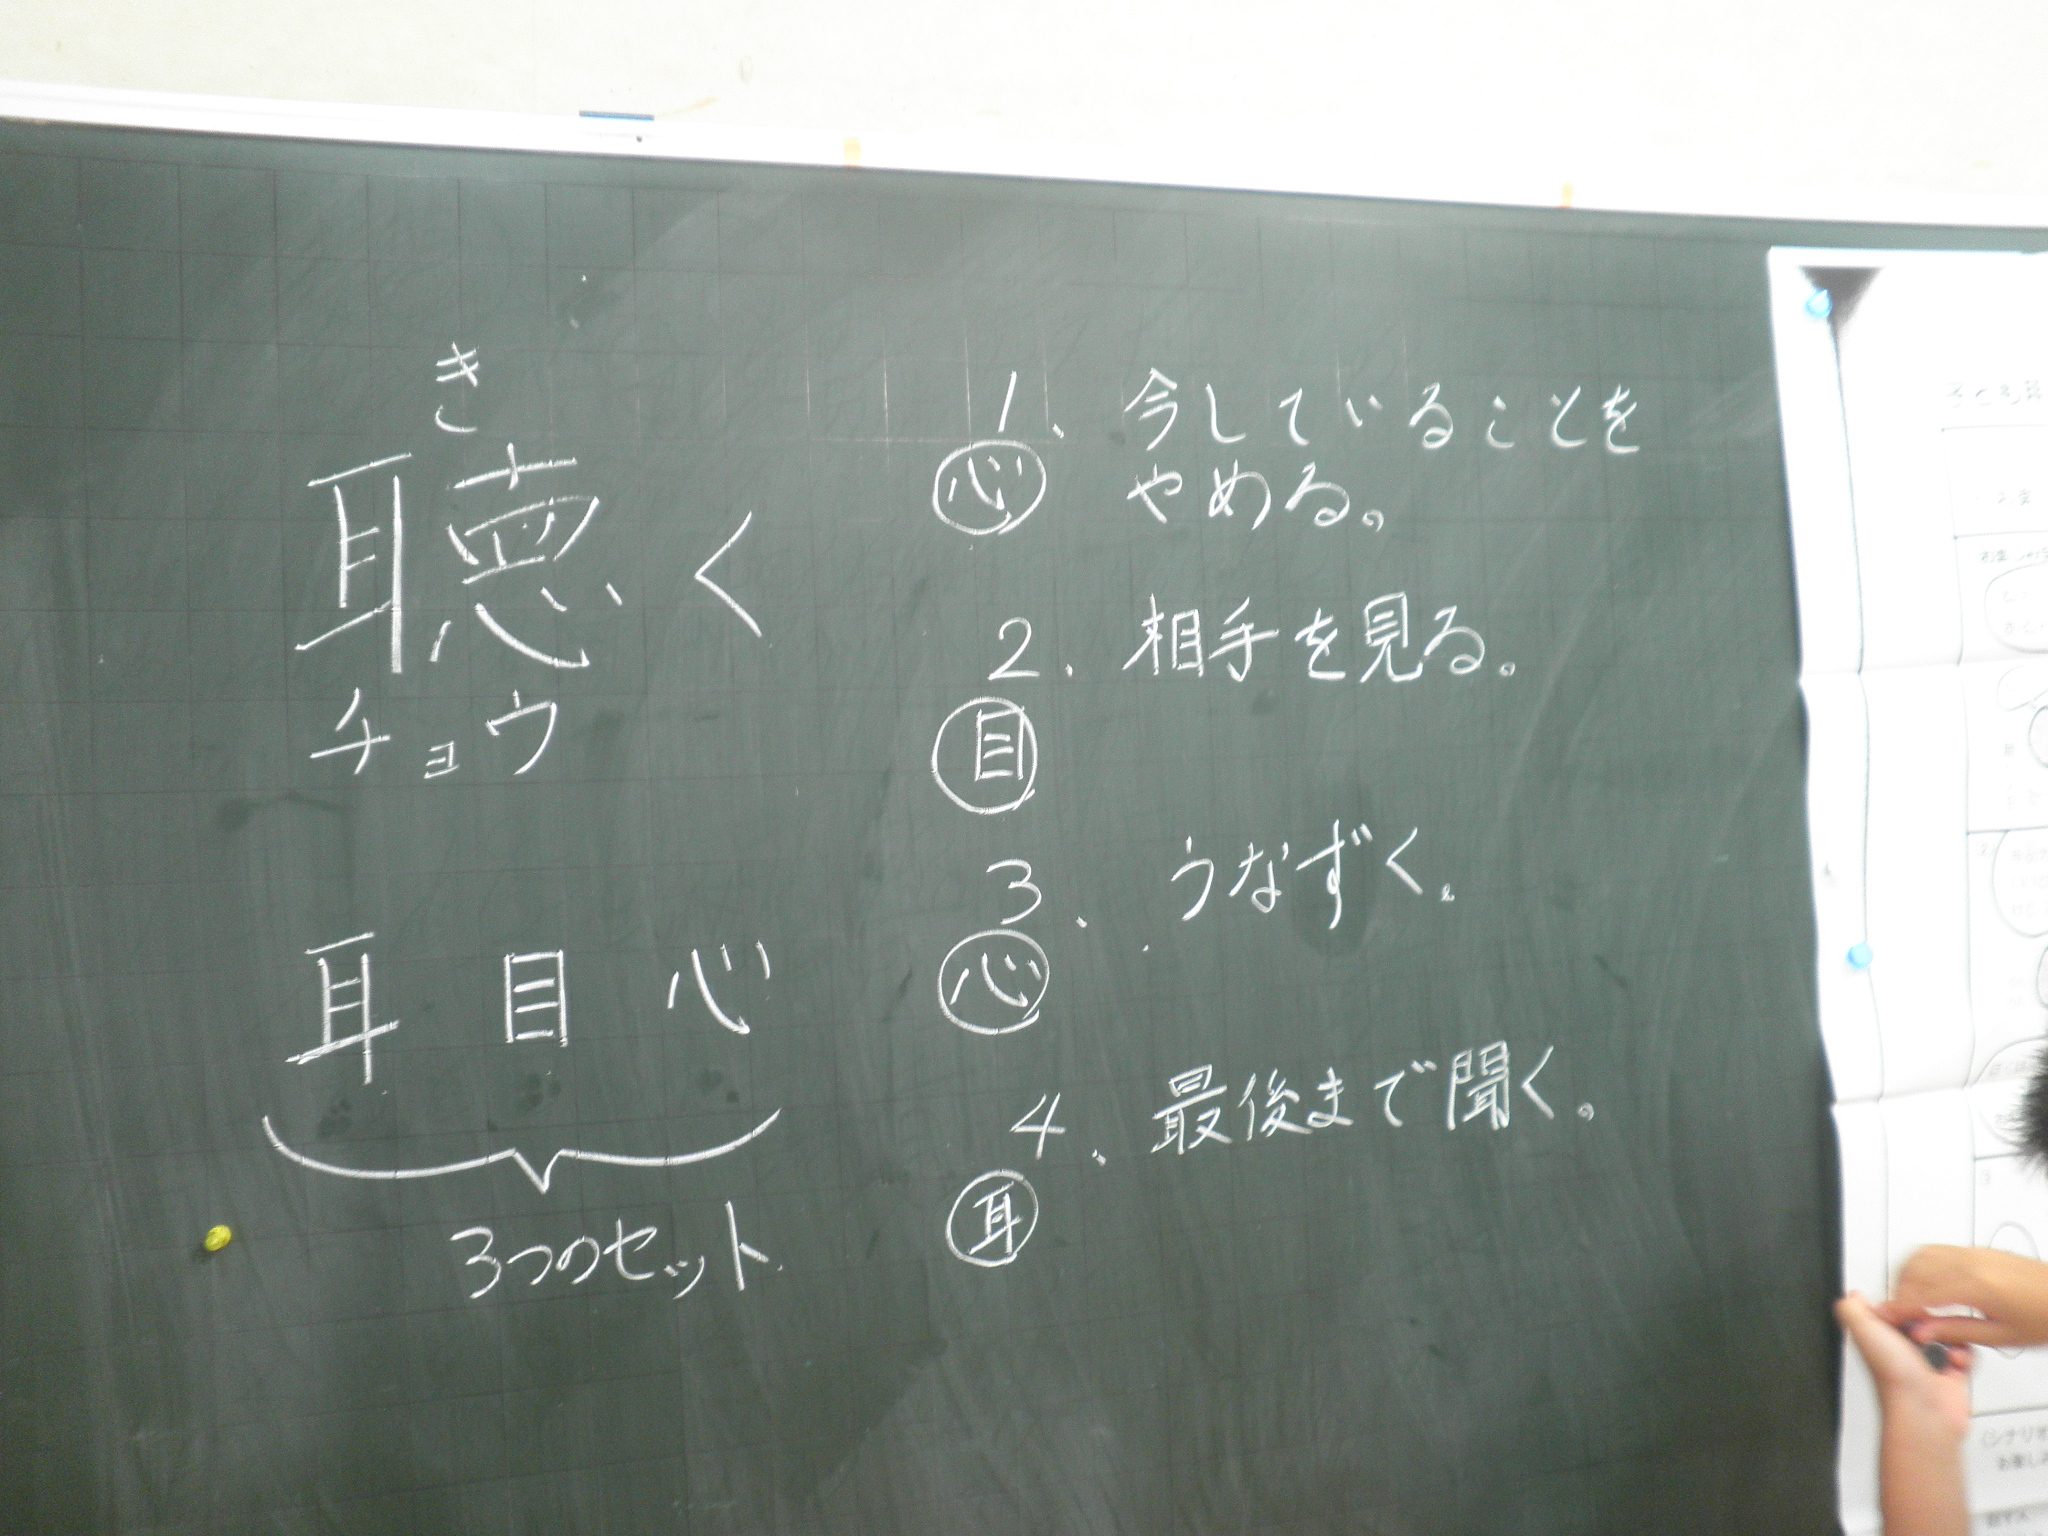 き
聴く
チョウ
耳 目 心
3つのセット
1、今していることを
心 やめる。
2、相手を見る。
目
3、うなずく。
心
4、最後まで聞く。
耳